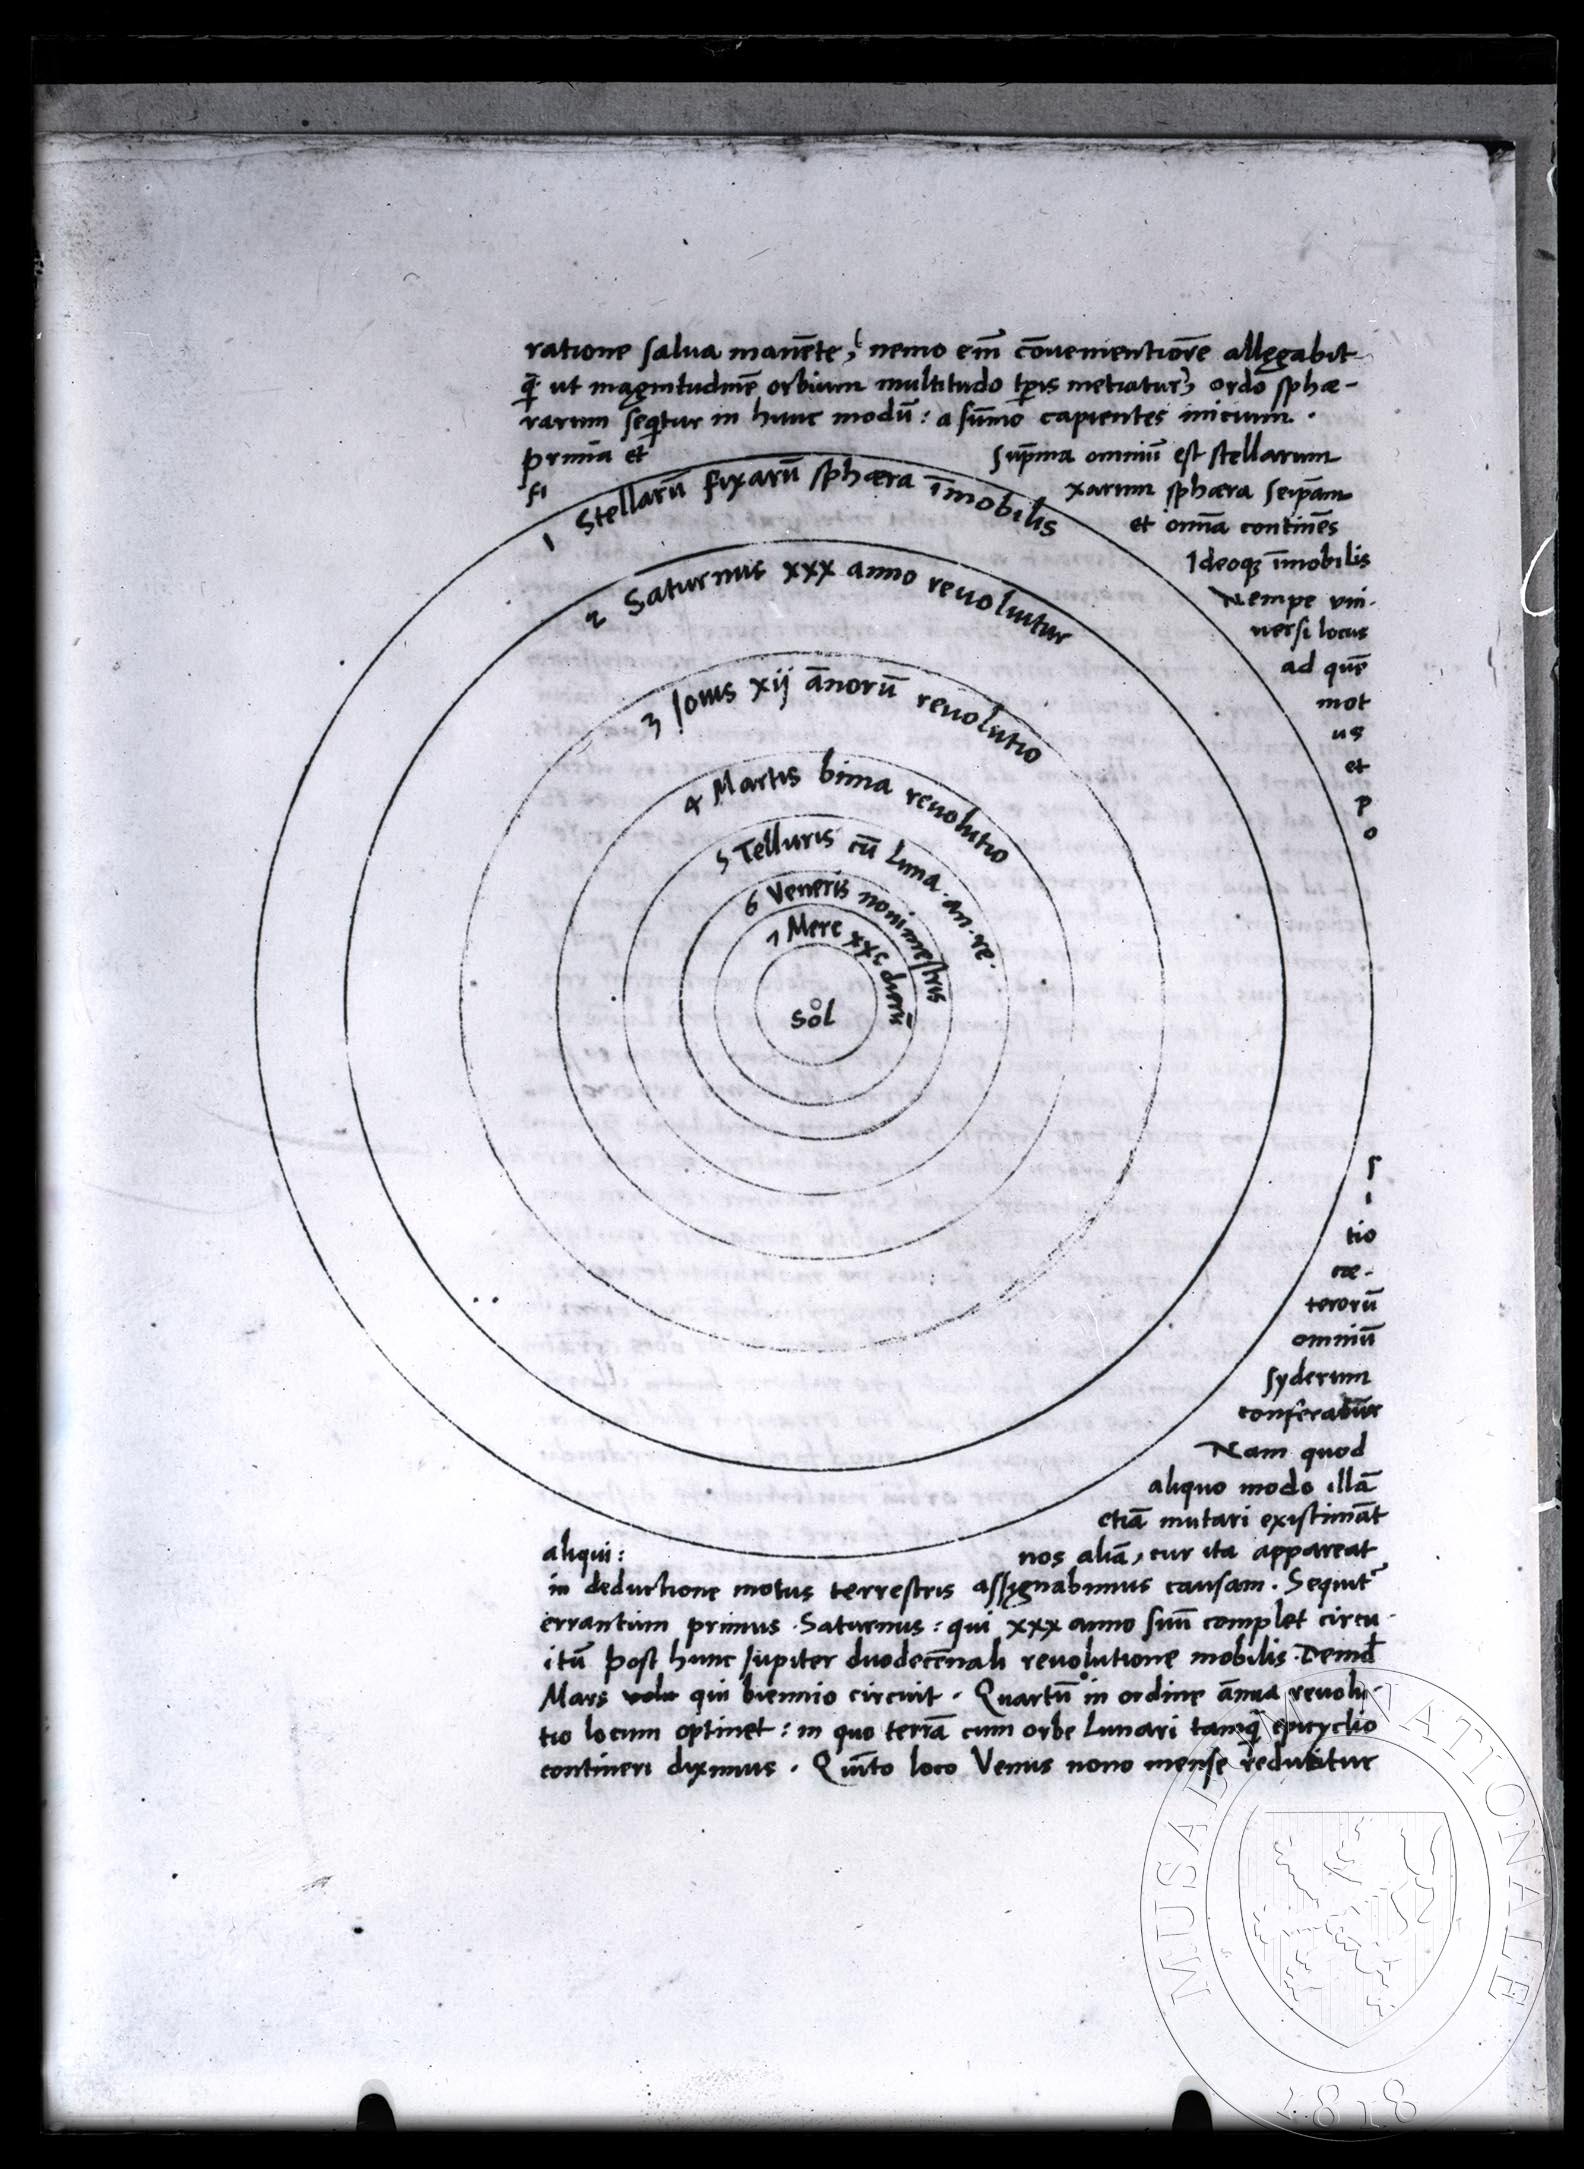 ratione salva manēte, nemo em̄ cōvenientiorē allegabit
q̄ ut magnitudinē orbium multitudo tp̄is metiatur, ordo sphæ-
rarum seq̄tur in hunc modū: a sūmo capientes inicium.
prima et Sup̄ma omniū est stellarum
fi xarum sphæra seip̄am
et omīa continēs
Ideoqz īmobilis
Nempe uni-
versi locus
ad quē
mot
us
et
p
o
s
i
tio
cæ-
terorū
omniū
syderum
conferatur
Nam quod
aliquo modo illā
etiā mutari existimāt
aliqui: nos aliā, cur ita appareat
in deductione motus terrestris assignabimus causam. Sequit
errantium primus Saturnus: qui xxx anno suū complet circu-
itū post hunc Iupiter duodecēnali revolutione mobilis. Deind
Mars qui biennio circuit. Quartū in ordine ānua revolu-
tio locum optinet: in quo terrā cum orbe Lunari tamq̄ epicyclio
contineri diximus. Quīto loco Venus nono mense reducitur
1 Stellarū fixarū sphæra īmobilis
2 Saturnus xxx anno revolvitur
3 Iovis xij ānorū revolutio
4 Martis bima revolutio
5 Telluris cū Luna. an. re.
6 Veneris nonimestris
7 Merc xxc dierū
Sol
MUSAEUM NATIONALE
1818